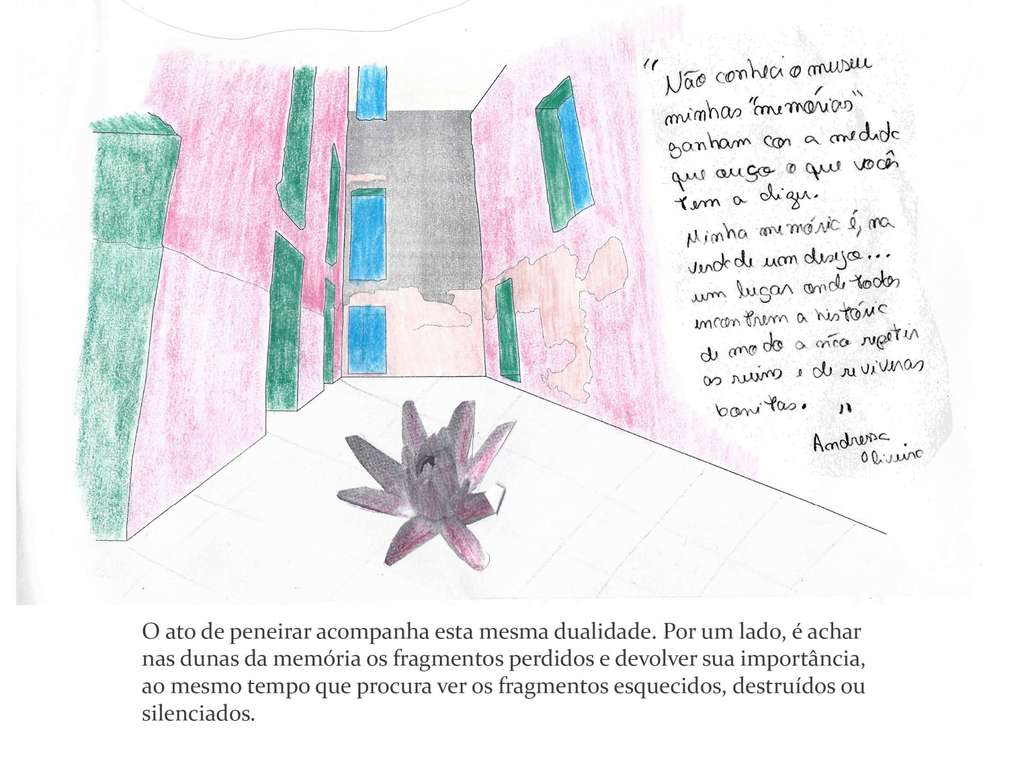 "Não conheci o museu
minhas "memórias"
ganham cor a medida
que ouço o que você
tem a dizer.
Minha memória é, na
verdade um desejo...
um lugar onde todos
encontrem a história
de modo a não repetir
as ruins e de reviver as
bonitas."
Andressa
Oliveira
O ato de peneirar acompanha esta mesma dualidade. Por um lado, é achar
nas dunas da memória os fragmentos perdidos e devolver sua importância,
ao mesmo tempo que procura ver os fragmentos esquecidos, destruídos ou
silenciados.